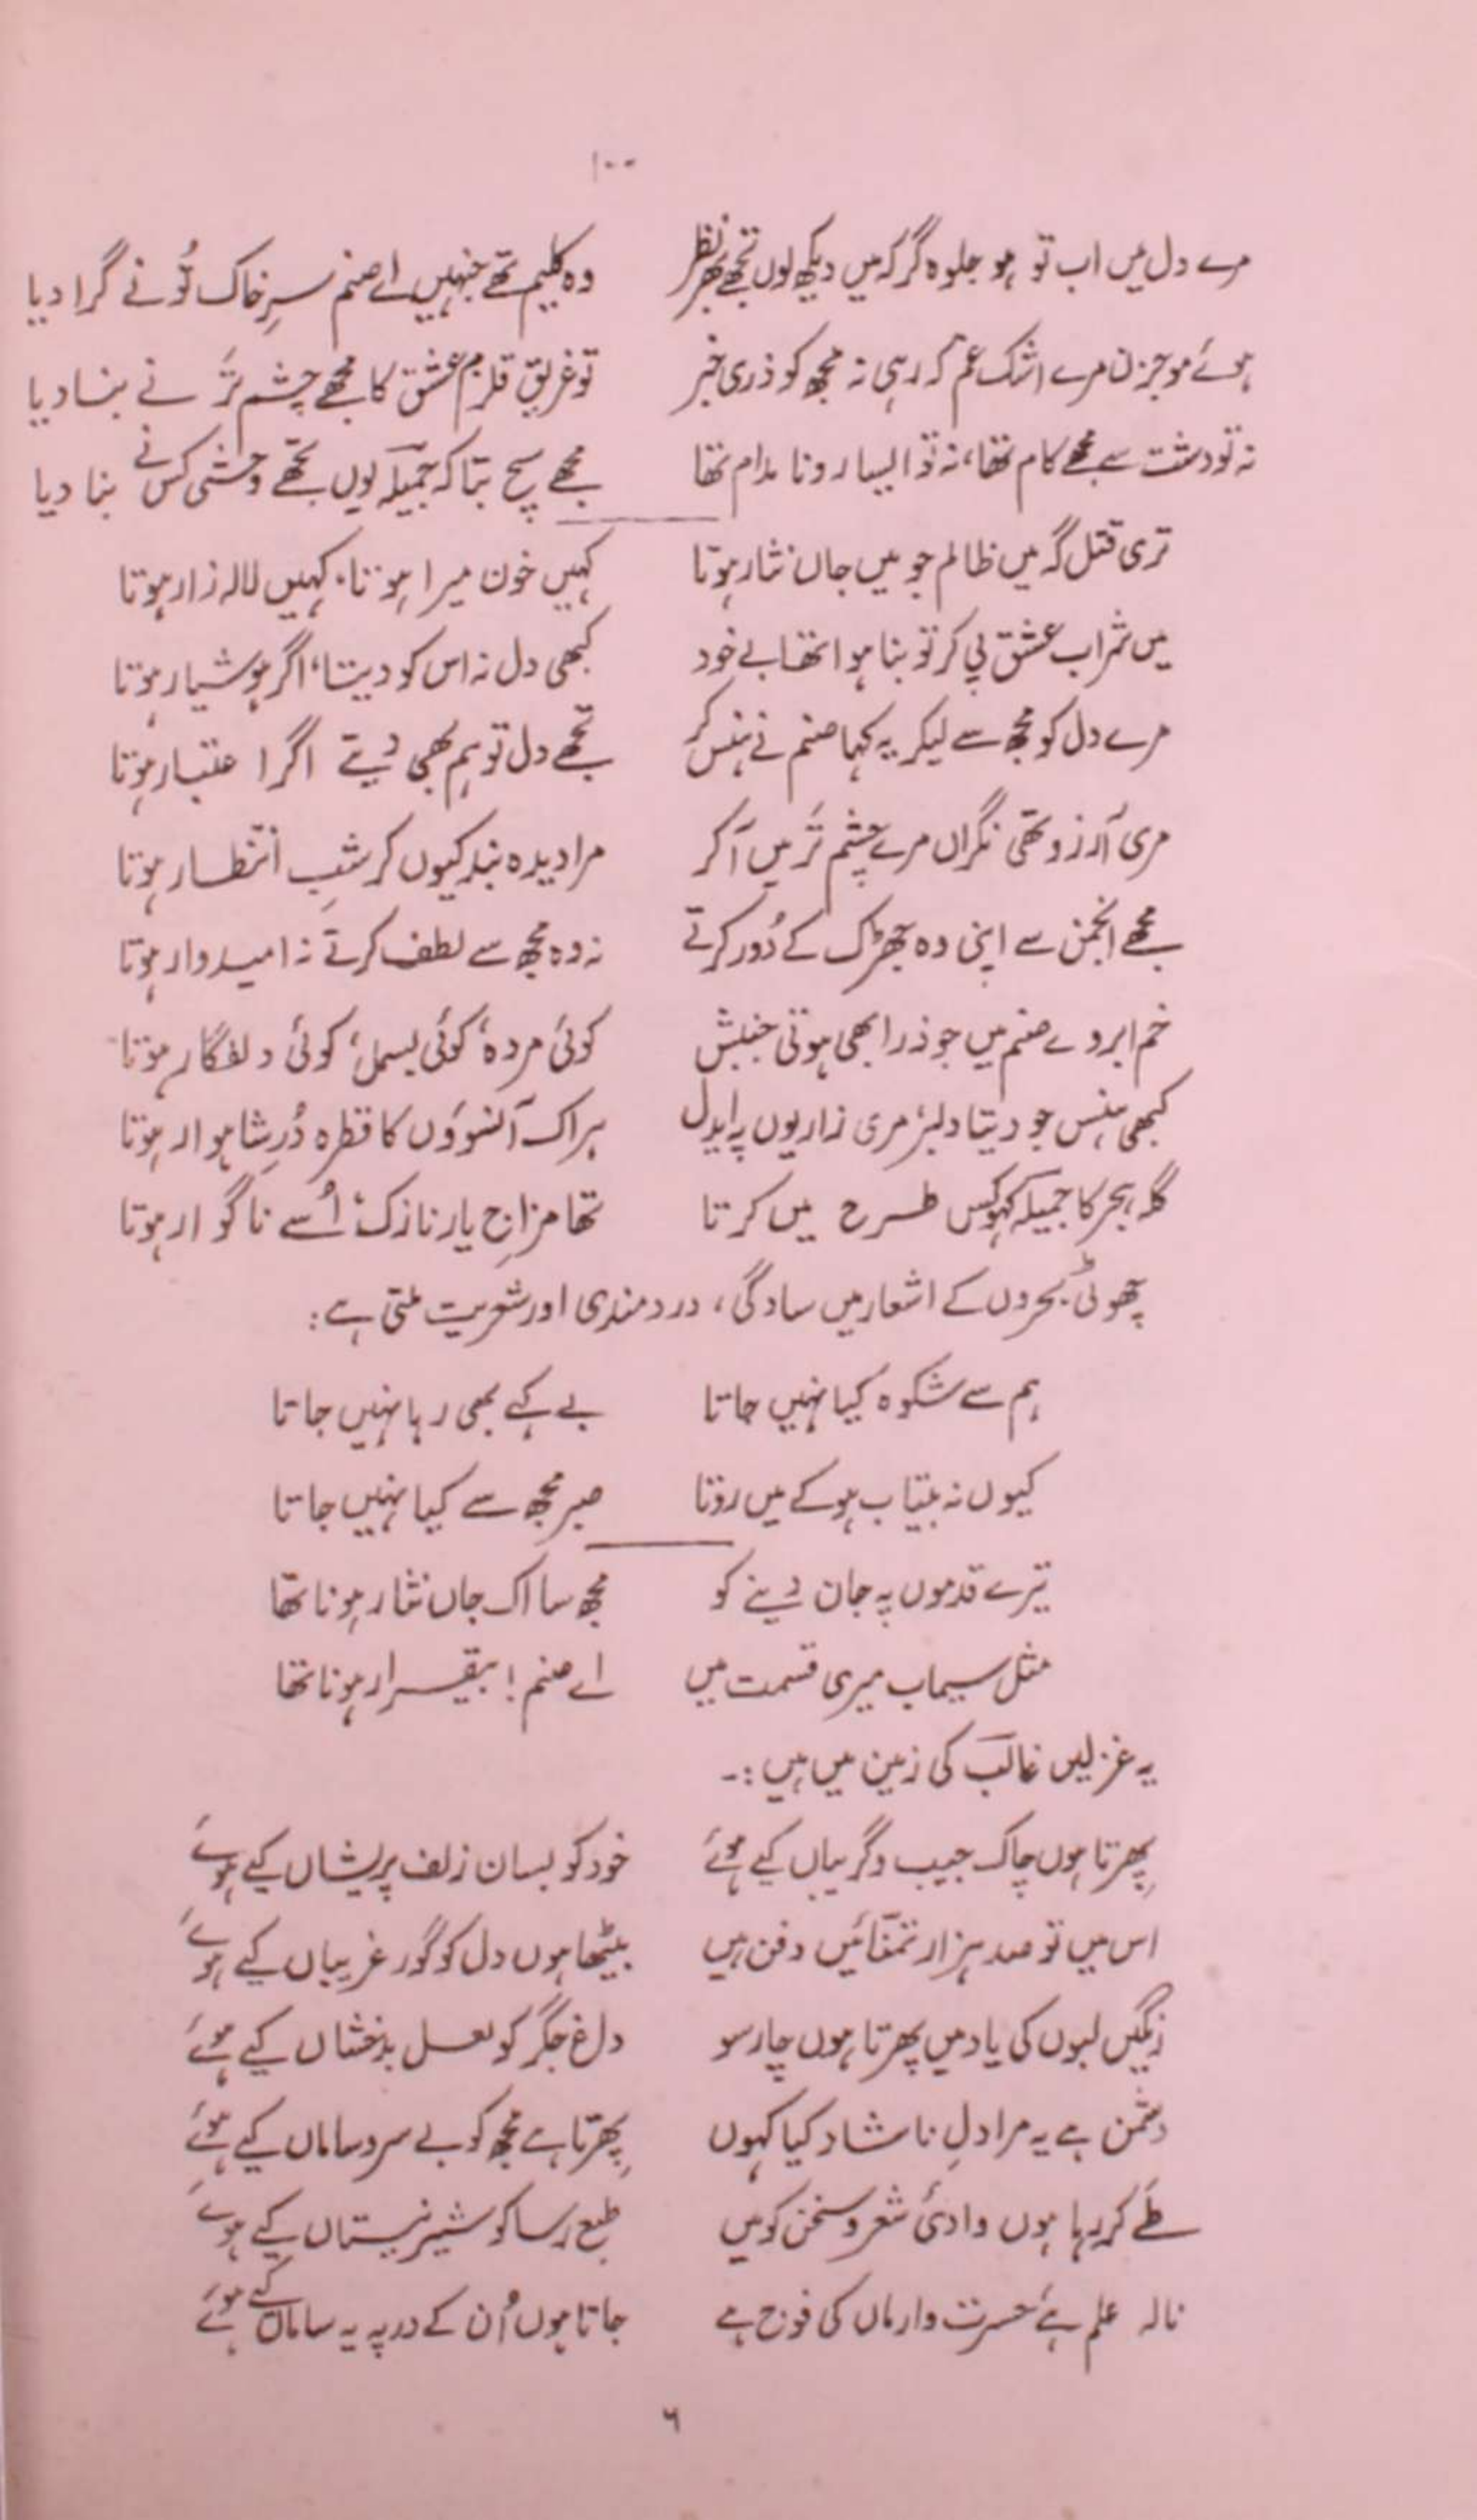 ۱۰۰
مرے دل میں اب تو ہو جلوہ گر کہ میں دیکھ لوں تجھے بھر نظر وہ کلیم تھے جنہیں اے صنم سرِ خاک تُو نے گرا دیا
ہوئے موجزن مرے اشک غم کہ رہی نہ مجھ کو ذری خبر تو غریق قلزمِ عشق کا مجھے چشم تَر نے بنا دیا
نہ تو دشت سے مجھے کام تھا، نہ تو ایسا رونا مدام تھا مجھے سچ بتا کہ جمیلہ یوں تجھے وحشی کس نے بنا دیا
تری قتل گہ میں ظالم جو میں جاں نثار ہوتا کہیں خون میرا ہوتا، کہیں لالہ زار ہوتا
میں شراب عشق پی کر تو بنا ہوا تھا بے خود کبھی دل نہ اس کو دیتا، اگر ہوشیار ہوتا
مرے دل کو مجھ سے لیکر یہ کہا صنم نے ہنس کر تجھے دل تو ہم بھی دیتے اگر اعتبار ہوتا
مری آرزو تھی نگراں مرے چشم تَر میں آ کر مرا دیدہ بند کیوں کر شبِ انتظار ہوتا
مجھے انجمن سے اپنی وہ جھڑک کے دُور کرتے نہ وہ مجھ سے لطف کرتے نہ امیدوار ہوتا
خم ابروے صنم میں جو ذرا بھی ہوتی جنبش کوئی مردہ، کوئی بسمل، کوئی دلفگار ہوتا
کبھی ہنس جو دیتا دلبر مری زاریوں پہ ایدل ہر اک آنسوؤں کا قطرہ دُرِ شاہوار ہوتا
گلہ ہجر کا جمیلہ کہو کس طرح میں کرتا تھا مزاجِ یار نازک، اُسے ناگوار ہوتا
چھوٹی بحروں کے اشعار میں سادگی، دردمندی اور شعریت ملتی ہے:
ہم سے شکوہ کیا نہیں جاتا بے کہے بھی رہا نہیں جاتا
کیوں نہ بیتاب ہوکے میں روتا صبر مجھ سے کیا نہیں جاتا
تیرے قدموں پہ جان دینے کو مجھ سا اک جاں نثار ہونا تھا
مثل سیماب میری قسمت میں اے صنم! بیقرار ہونا تھا
یہ غزلیں غالبؔ کی زمین میں ہیں :۔
پھرتا ہوں چاک جیب و گریباں کیے ہوئے خود کو بسان زلف پریشاں کیے ہوئے
اس میں تو صد ہزار تمنّائیں دفن ہیں بیٹھا ہوں دل کو گور غریباں کیے ہوئے
رنگیں لبوں کی یاد میں پھرتا ہوں چارسو داغِ جگر کو لعل بدخشاں کیے ہوئے
دشمن ہے یہ مرا دلِ ناشاد کیا کہوں پھرتا ہے مجھ کو بے سروساماں کیے ہوئے
طے کر رہا ہوں وادئ شعر و سخن کو میں طبع رسا کو شیرِ نیستاں کیے ہوئے
نالہ علم ہے حسرت و ارماں کی فوج ہے جاتا ہوں اُن کے در پہ یہ ساماں کیے ہوئے
۶